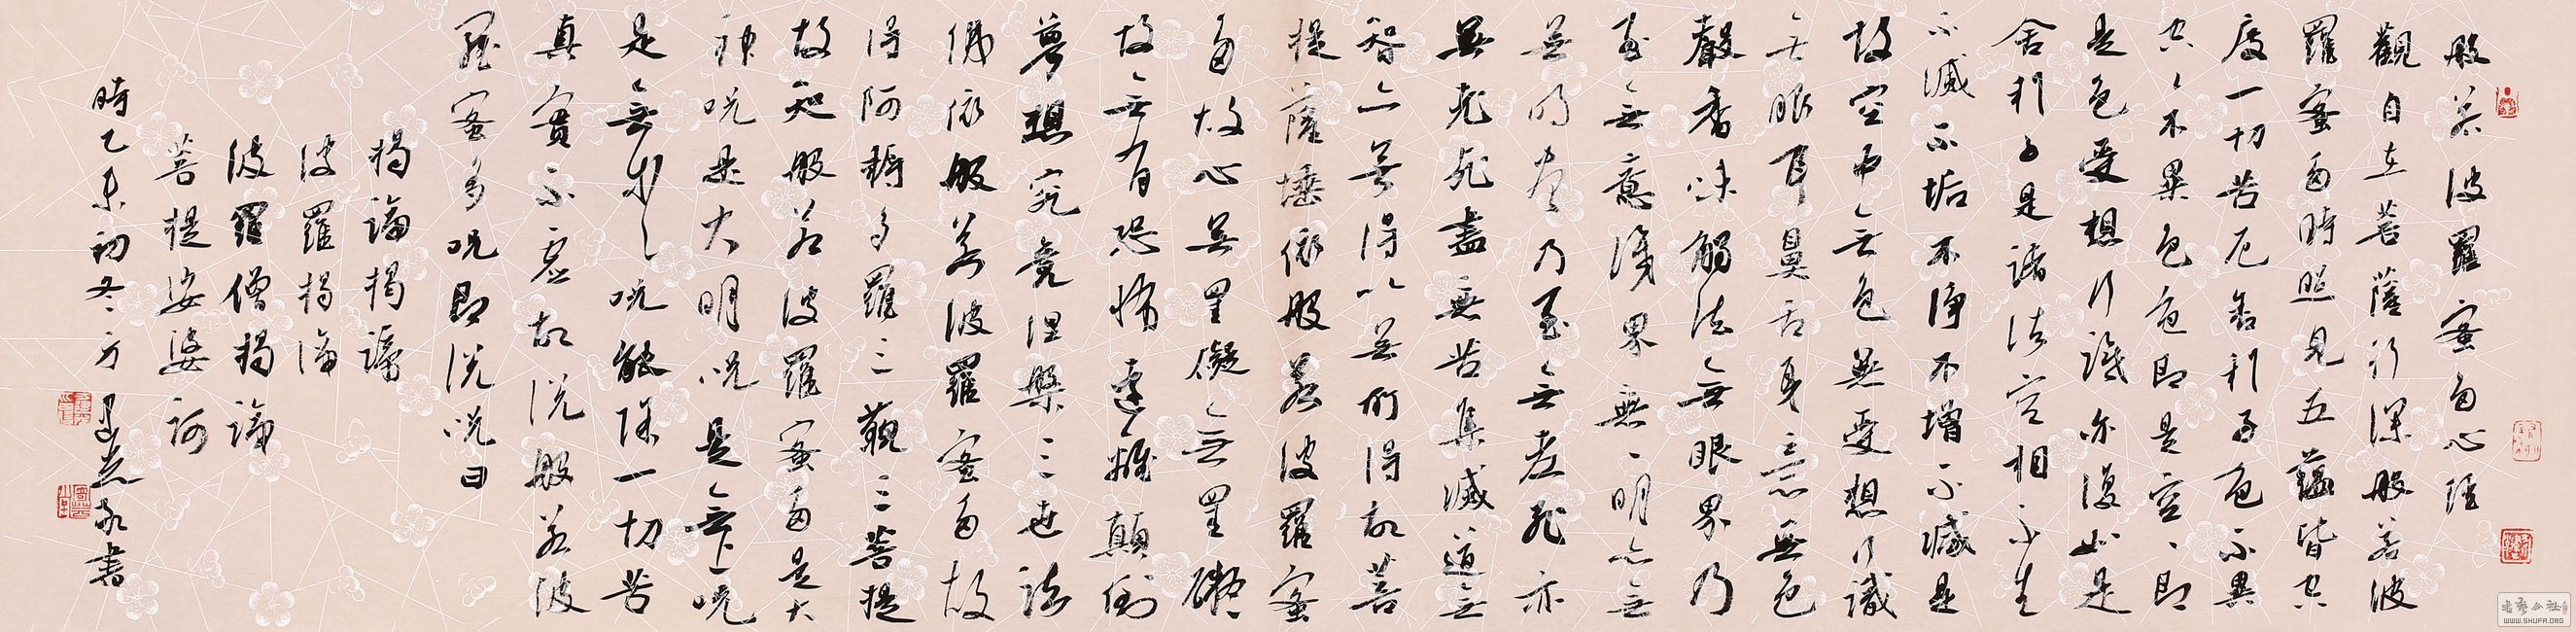 般若波羅蜜多心經
觀自在菩薩行深般若波
羅蜜多時照見五蘊皆空
度一切苦厄舍利子色不異
空空不異色色即是空空即
是色受想行識亦復如是
舍利子是諸法空相不生
不滅不垢不淨不增不減是
故空中無色無受想行識
無眼耳鼻舌身意無色
聲香味觸法無眼界乃
至無意識界無無明亦無
無明盡乃至無老死亦
無老死盡無苦集滅道無
智亦無得以無所得故菩
提薩埵依般若波羅蜜
多故心無罣礙無罣礙
故無有恐怖遠離顛倒
夢想究竟涅槃三世諸
佛依般若波羅蜜多故
得阿耨多羅三藐三菩提
故知般若波羅蜜多是大
神咒是大明咒是無上咒
是無等等咒能除一切苦
真實不虛故說般若波
羅蜜多咒即說咒曰
揭諦揭諦
波羅揭諦
波羅僧揭諦
菩提娑婆訶
時乙未初冬方敬書
WWW.SHUFA.ORG